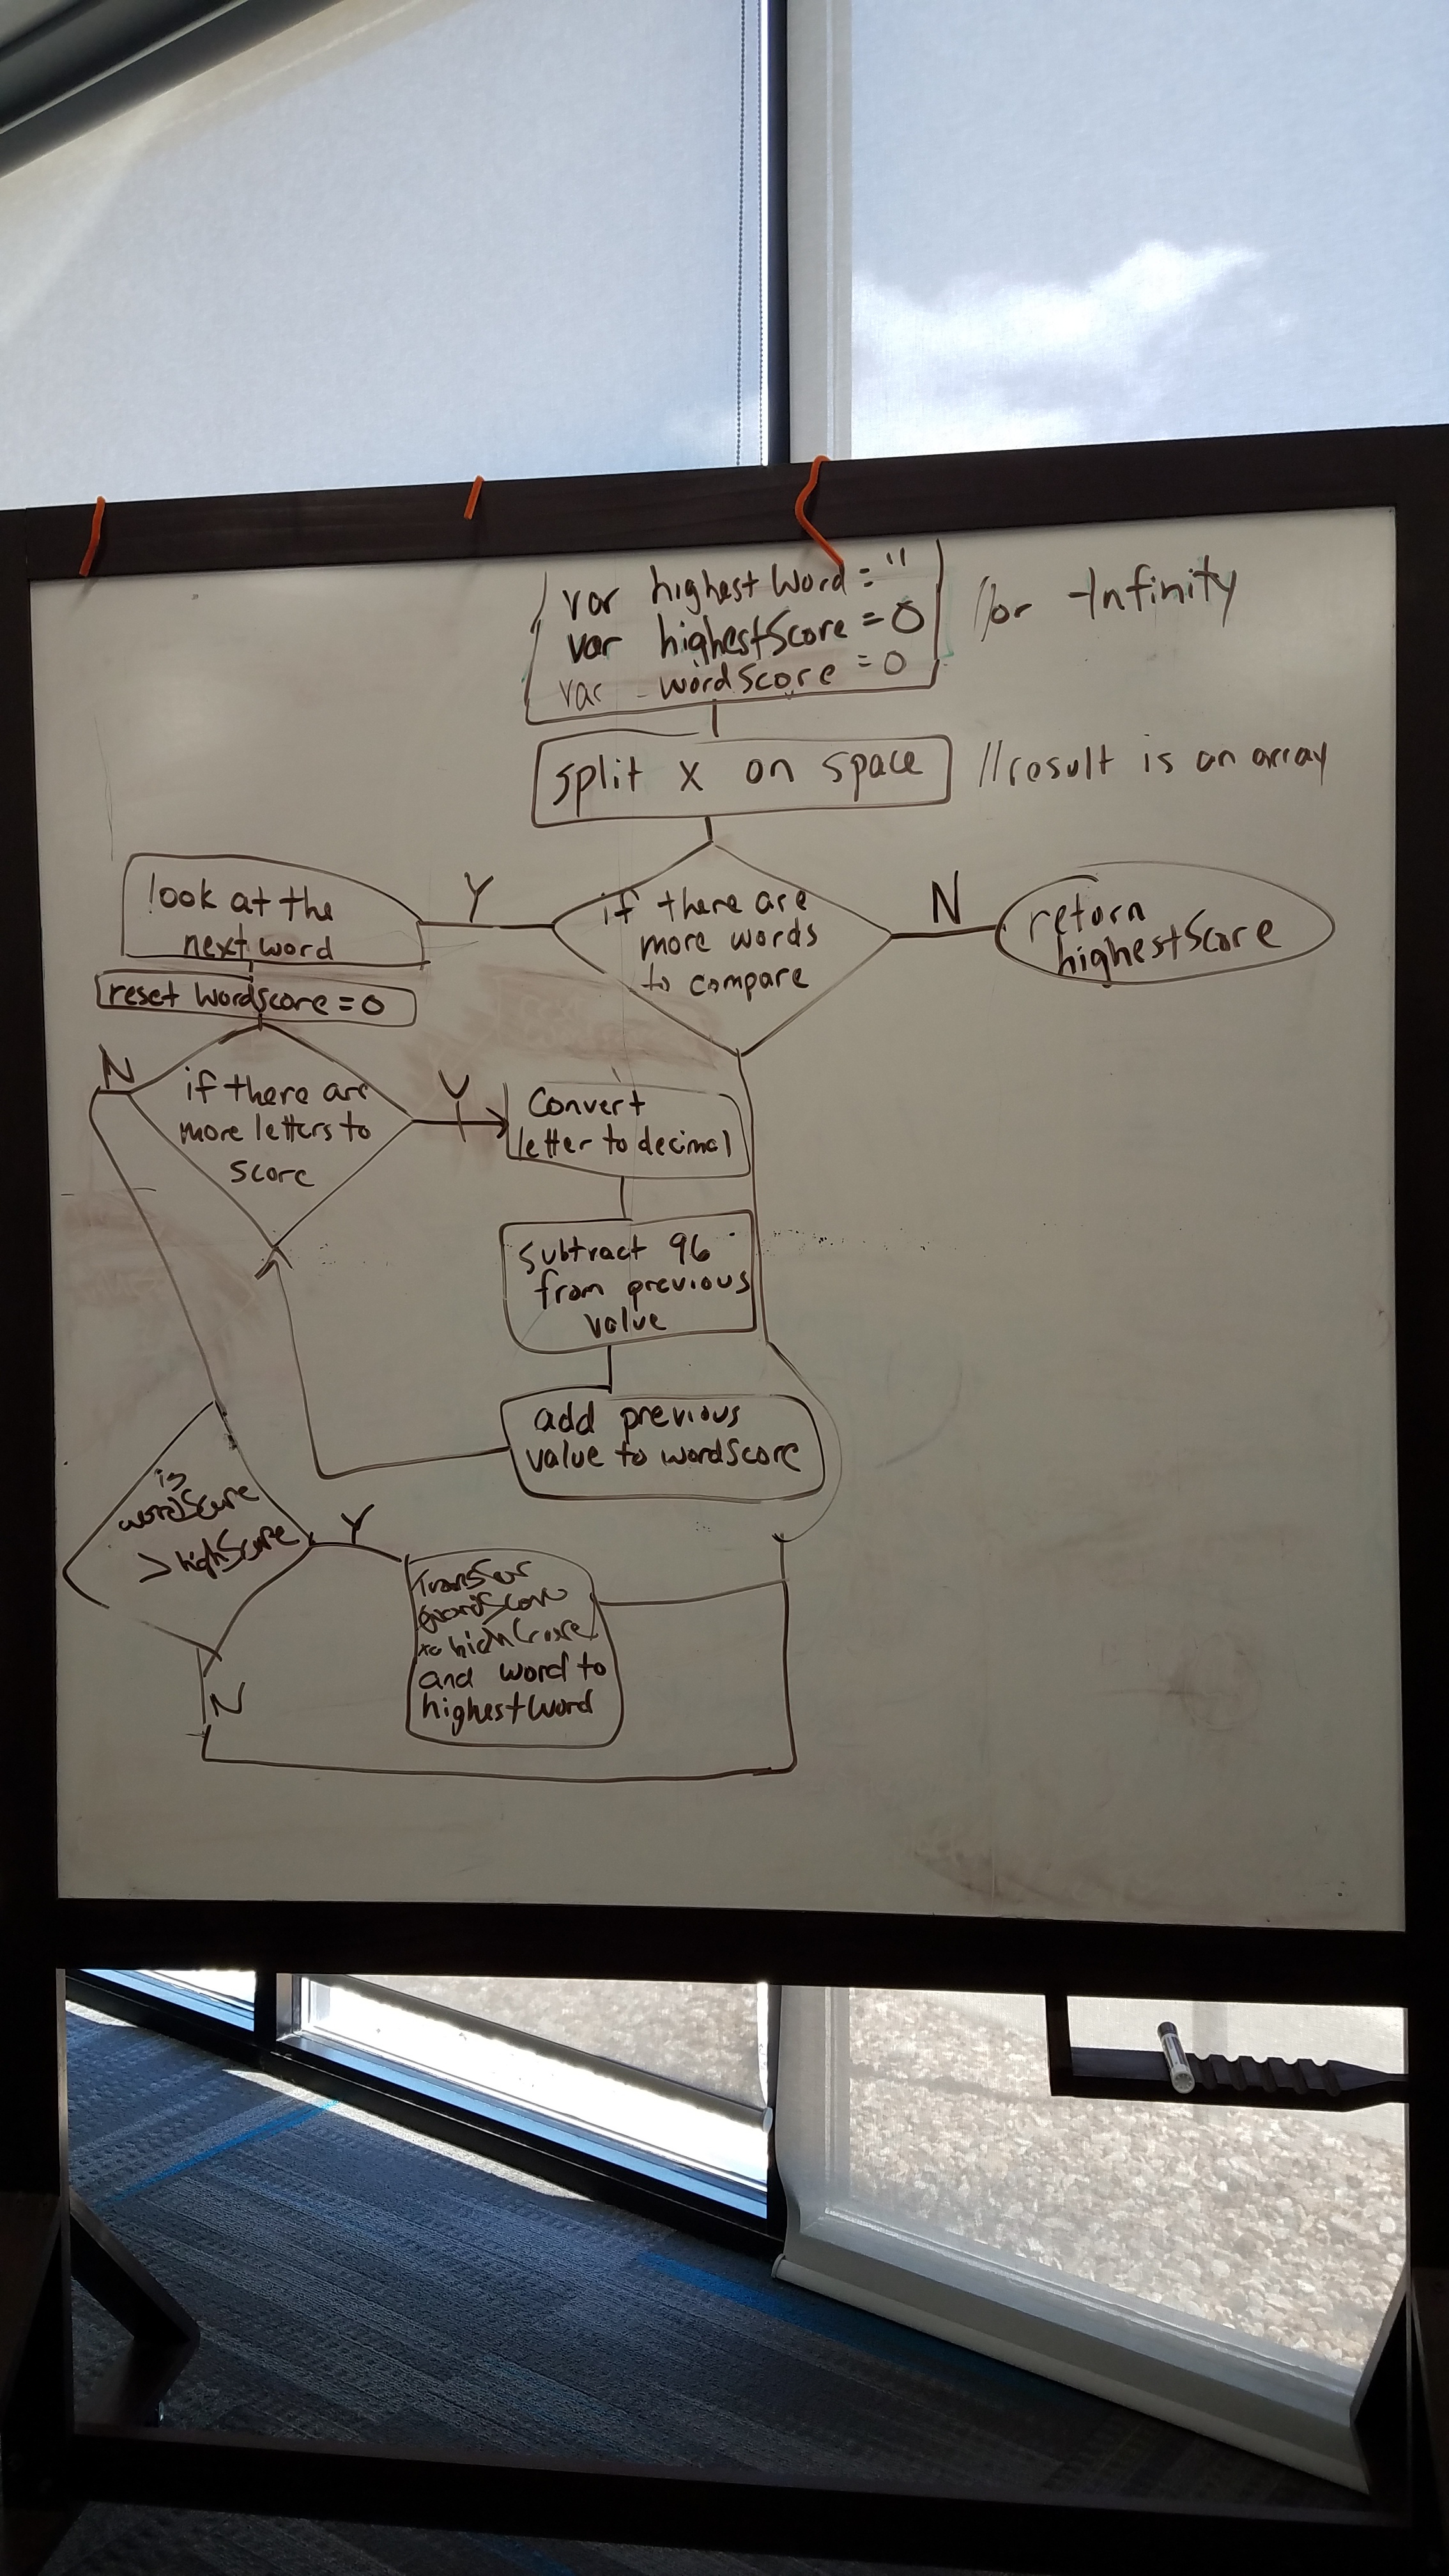 var highestWord = ''
var highestScore = 0
var wordScore = 0
//or -Infinity
split x on space
//result is an array
if there are
more words
to compare
Y
N
look at the
next word
return
highestScore
reset wordscore = 0
if there are
more letters to
score
N
Y
Convert
letter to decimal
Subtract 96
from previous
value
add previous
value to wordscore
is
wordScore
> highScore
Y
N
Transfer
wordScore
to highScore
and word to
highestWord